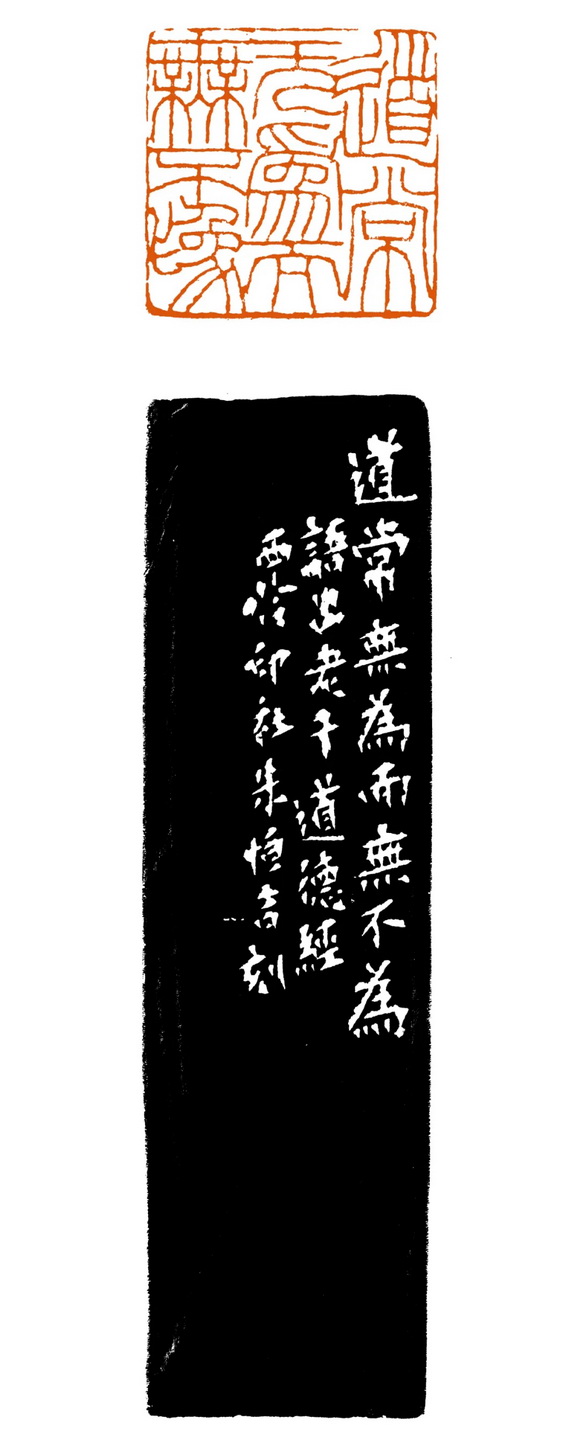 道常
无爲而
無不爲
道常無為而無不為
語出老子道德經
西泠印社朱恒吉刻